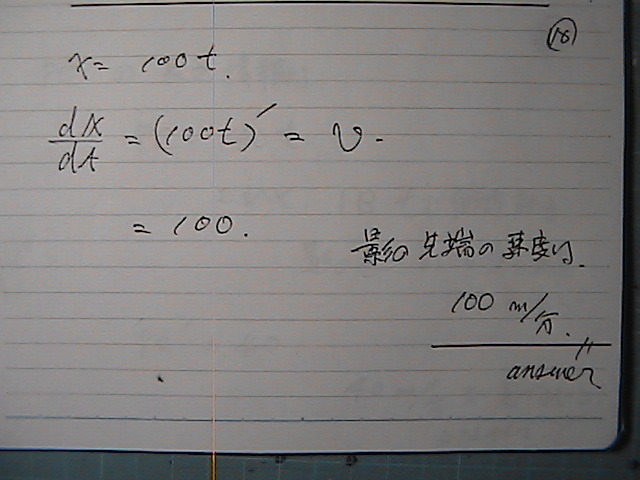 (18)
x = 100t.
dx/dt = (100t)' = v.
= 100.
影の先端の速度は.
100 m/分.
answer